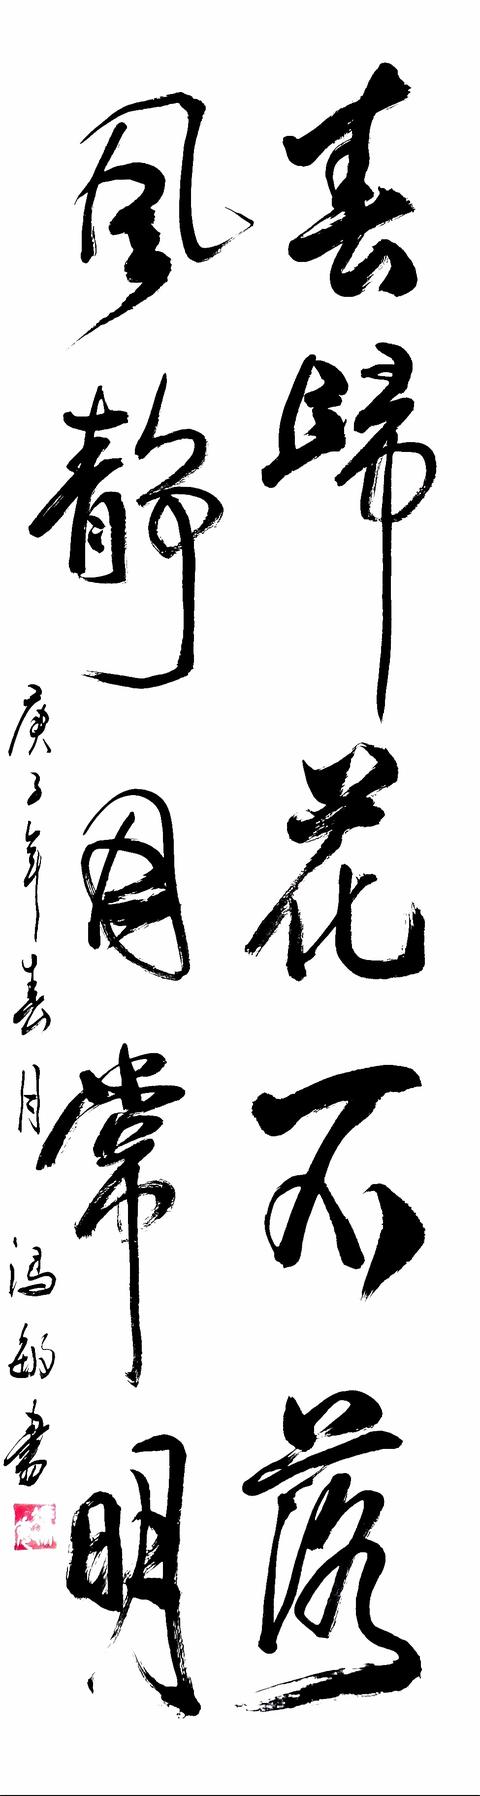 春歸花不落
風靜月常明
庚子年春月 馮敏書